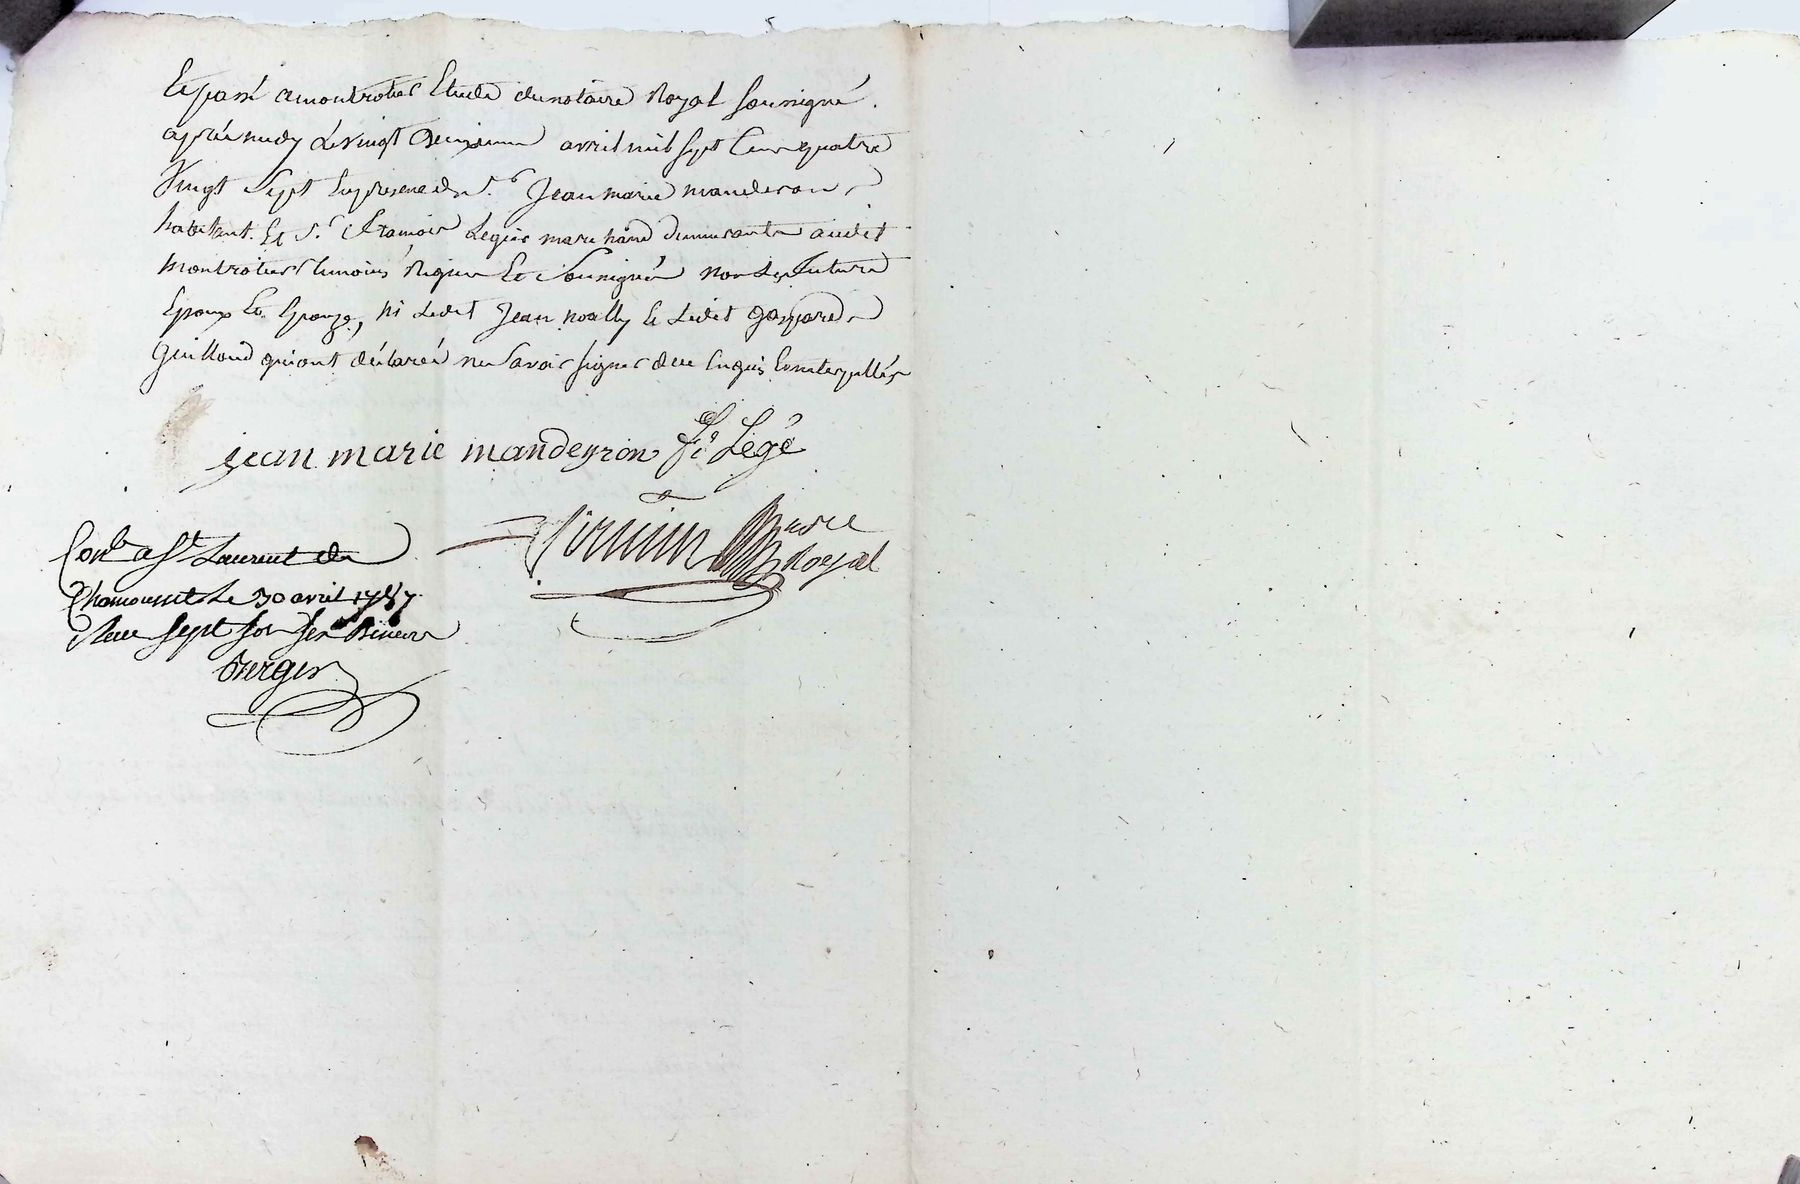 et passé a montrotier Etude du notaire Royal soussigné.
après midy le vingt deuxieme avril mil sept Cent quatre
Vingt Sept En presence de Sr. Jean marie manderon
habitant Et Sr. francois Legier marchand demeurants audit
montrotier temoins Requis Et Soussignés non Les futurs
Epoux Et Epouze, ni Ledit Jean noally Et Ledit gaspard
guilloud qui ont déclarés ne savoir signer de ce Enquis Et interpellés
jean marie mandeyron fs Legé
nore
Royal
Conlé a St Laurent de
Chamousset Le 30 avril 1787
Reçu sept sols six deniers
Berger